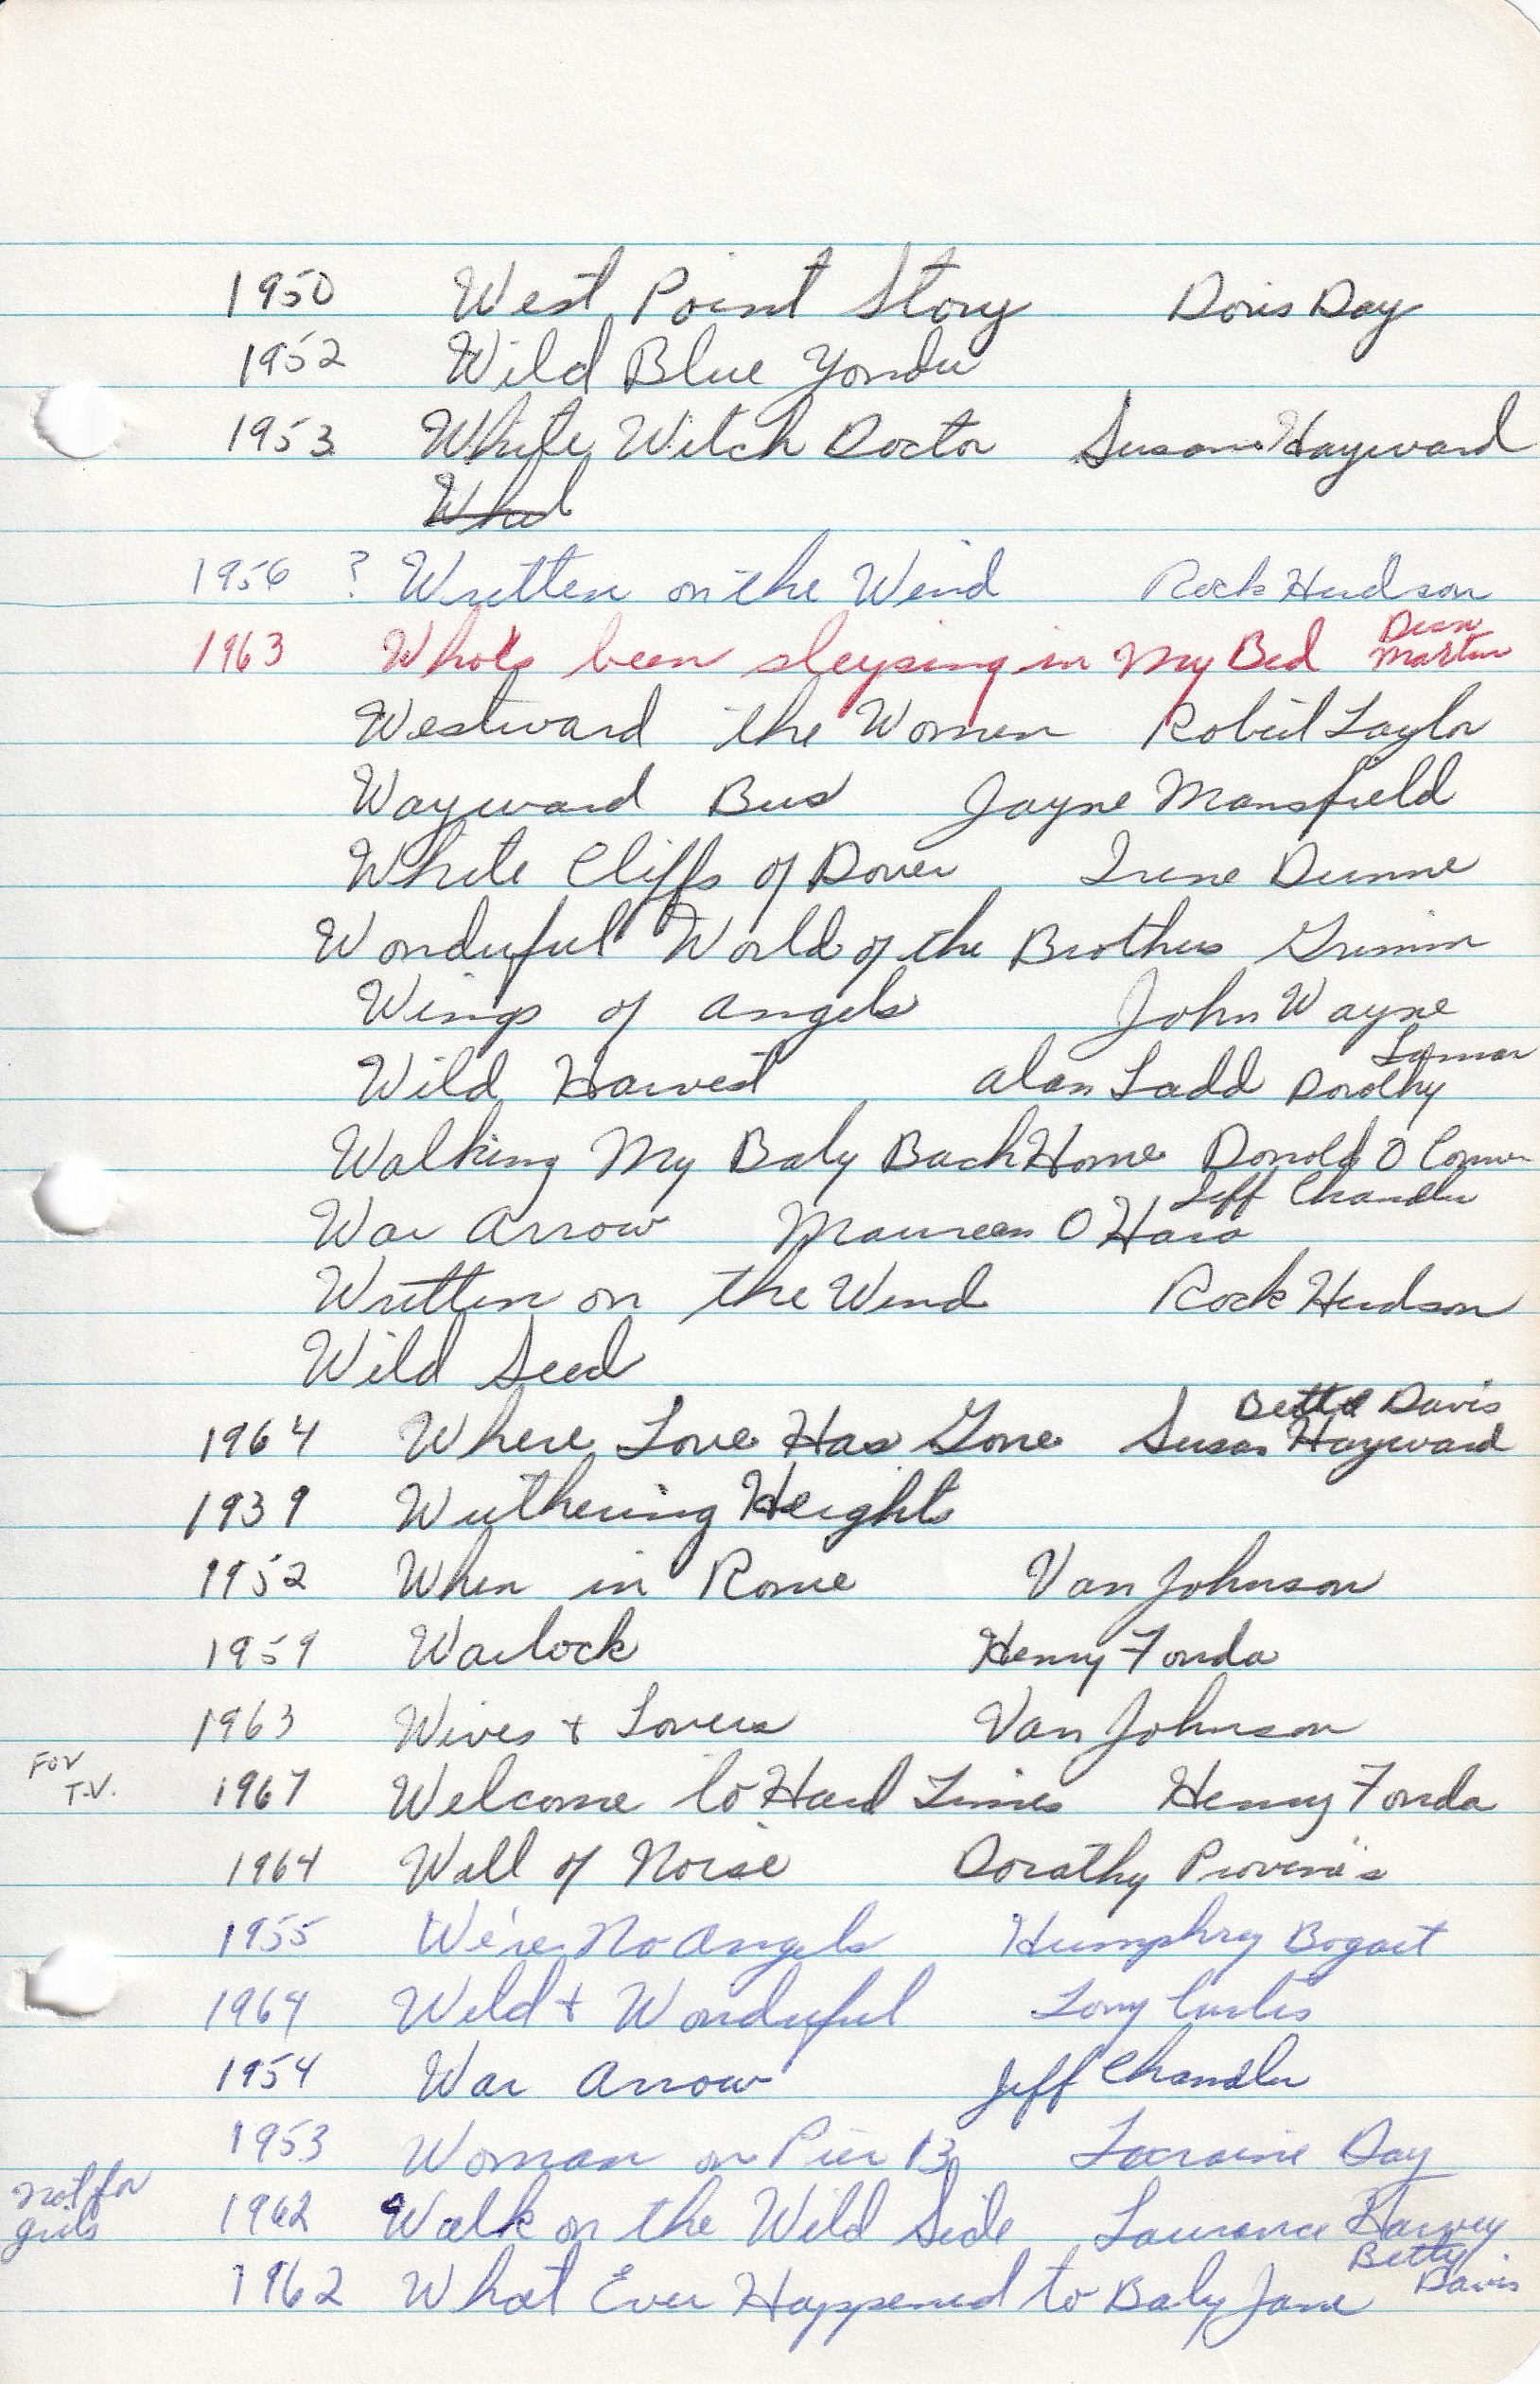 1950 West Point Story Doris Day
1952 Wild Blue Yonder
1953 White Witch Doctor Susan Hayward
Whed
1956 ? Written on the Wind Rock Hudson
1963 Who's been sleeping in My Bed Dean Martin
Westward the Women Robert Taylor
Wayward Bus Jayne Mansfield
White Cliffs of Dover Irene Dunne
Wonderful World of the Brothers Grimm
Wings of Angels John Wayne
Wild Harvest Alan Ladd Dorothy Lamour
Walking My Baby Back Home Donald O Connor
War Arrow Maureen O Hara Jeff Chandler
Written on the Wind Rock Hudson
Wild Seed
1964 Where Love Has Gone Susan Hayward Bette Davis
1939 Wuthering Heights
1952 When in Rome Van Johnson
1959 Warlock Henry Fonda
1963 Wives + Lovers Van Johnson
For T.V. 1967 Welcome to Hard Times Henry Fonda
1964 Wall of Noise Dorathy
1955 We're No Angels Humphrey Bogart
1964 Wild + Wonderful Tony Curtis
1954 War Arrow Jeff Chandler
1953 Woman on Pier 13 Larraine Day
not for girls 1962 Walk on the Wild Side Laurence Harvey
1962 What Ever Happened to Baby Jane Betty Davis